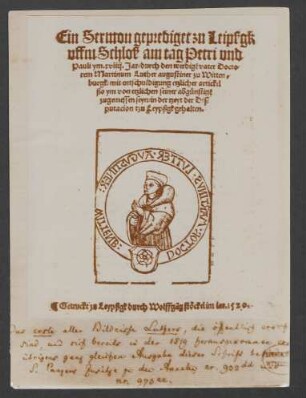 Ein Sermon geprediget tzu Leipßgk
uffm Schloß am tag Petri und
Pauli ym .xviiij. Jar / durch den wirdigē vater Docto-
rem Martinum Luther augustiner zu Witten-
burgk / mit entschuldigung etzlicher artickel
ßo ym von etzlichen seiner abgünstigē
zugemessen seyn / in der zeyt der Dis-
putacion tzu Leypßgk gehalten.
DOCTOR · MARTINVS LVTTER AVGVSTINER WITTEB:
¶ Getruckt zu Leypßgk durch Wolffgāg stöckel im iar. 1520.
Das erste aller Bildnisse Luthers, die öffentlich
sind, und sich bereits in der 1519
übrigens ganz gleichen Ausgabe dieser Schrift
S. Panzers Zusätze zu den Annalen no. 902
no. 972